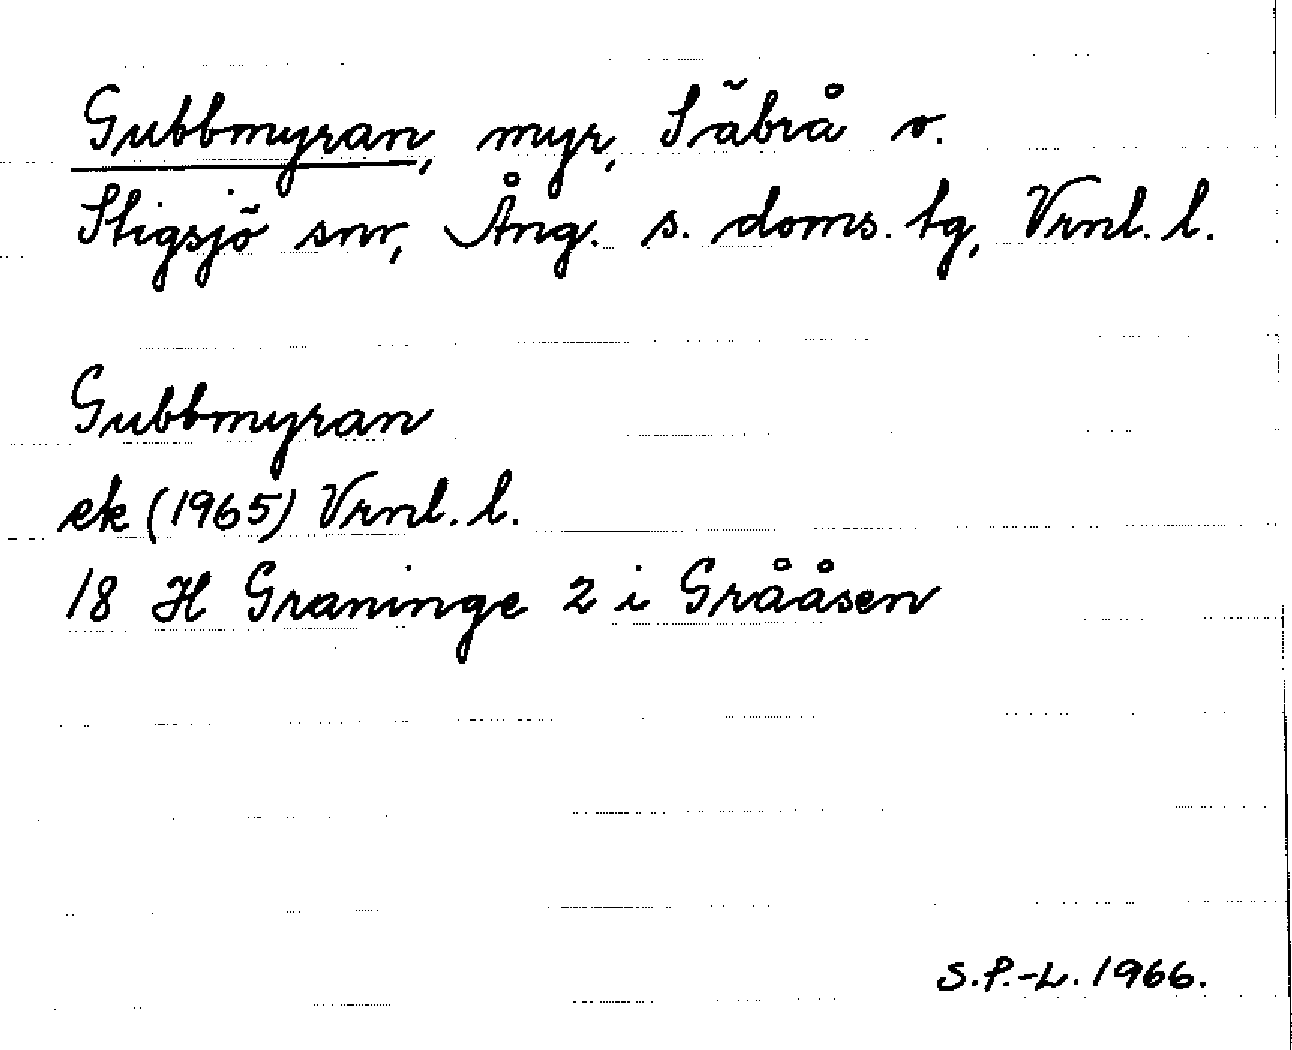 Gubbmyran, myr, Säbrå o.
Stigsjö snr, Ång. s. doms. tg, Vrnl. l.
Gubbmyran
ek (1965) Vrnl. l.
18 H Graninge 2 i Grååsen
S.P.-L. 1966.